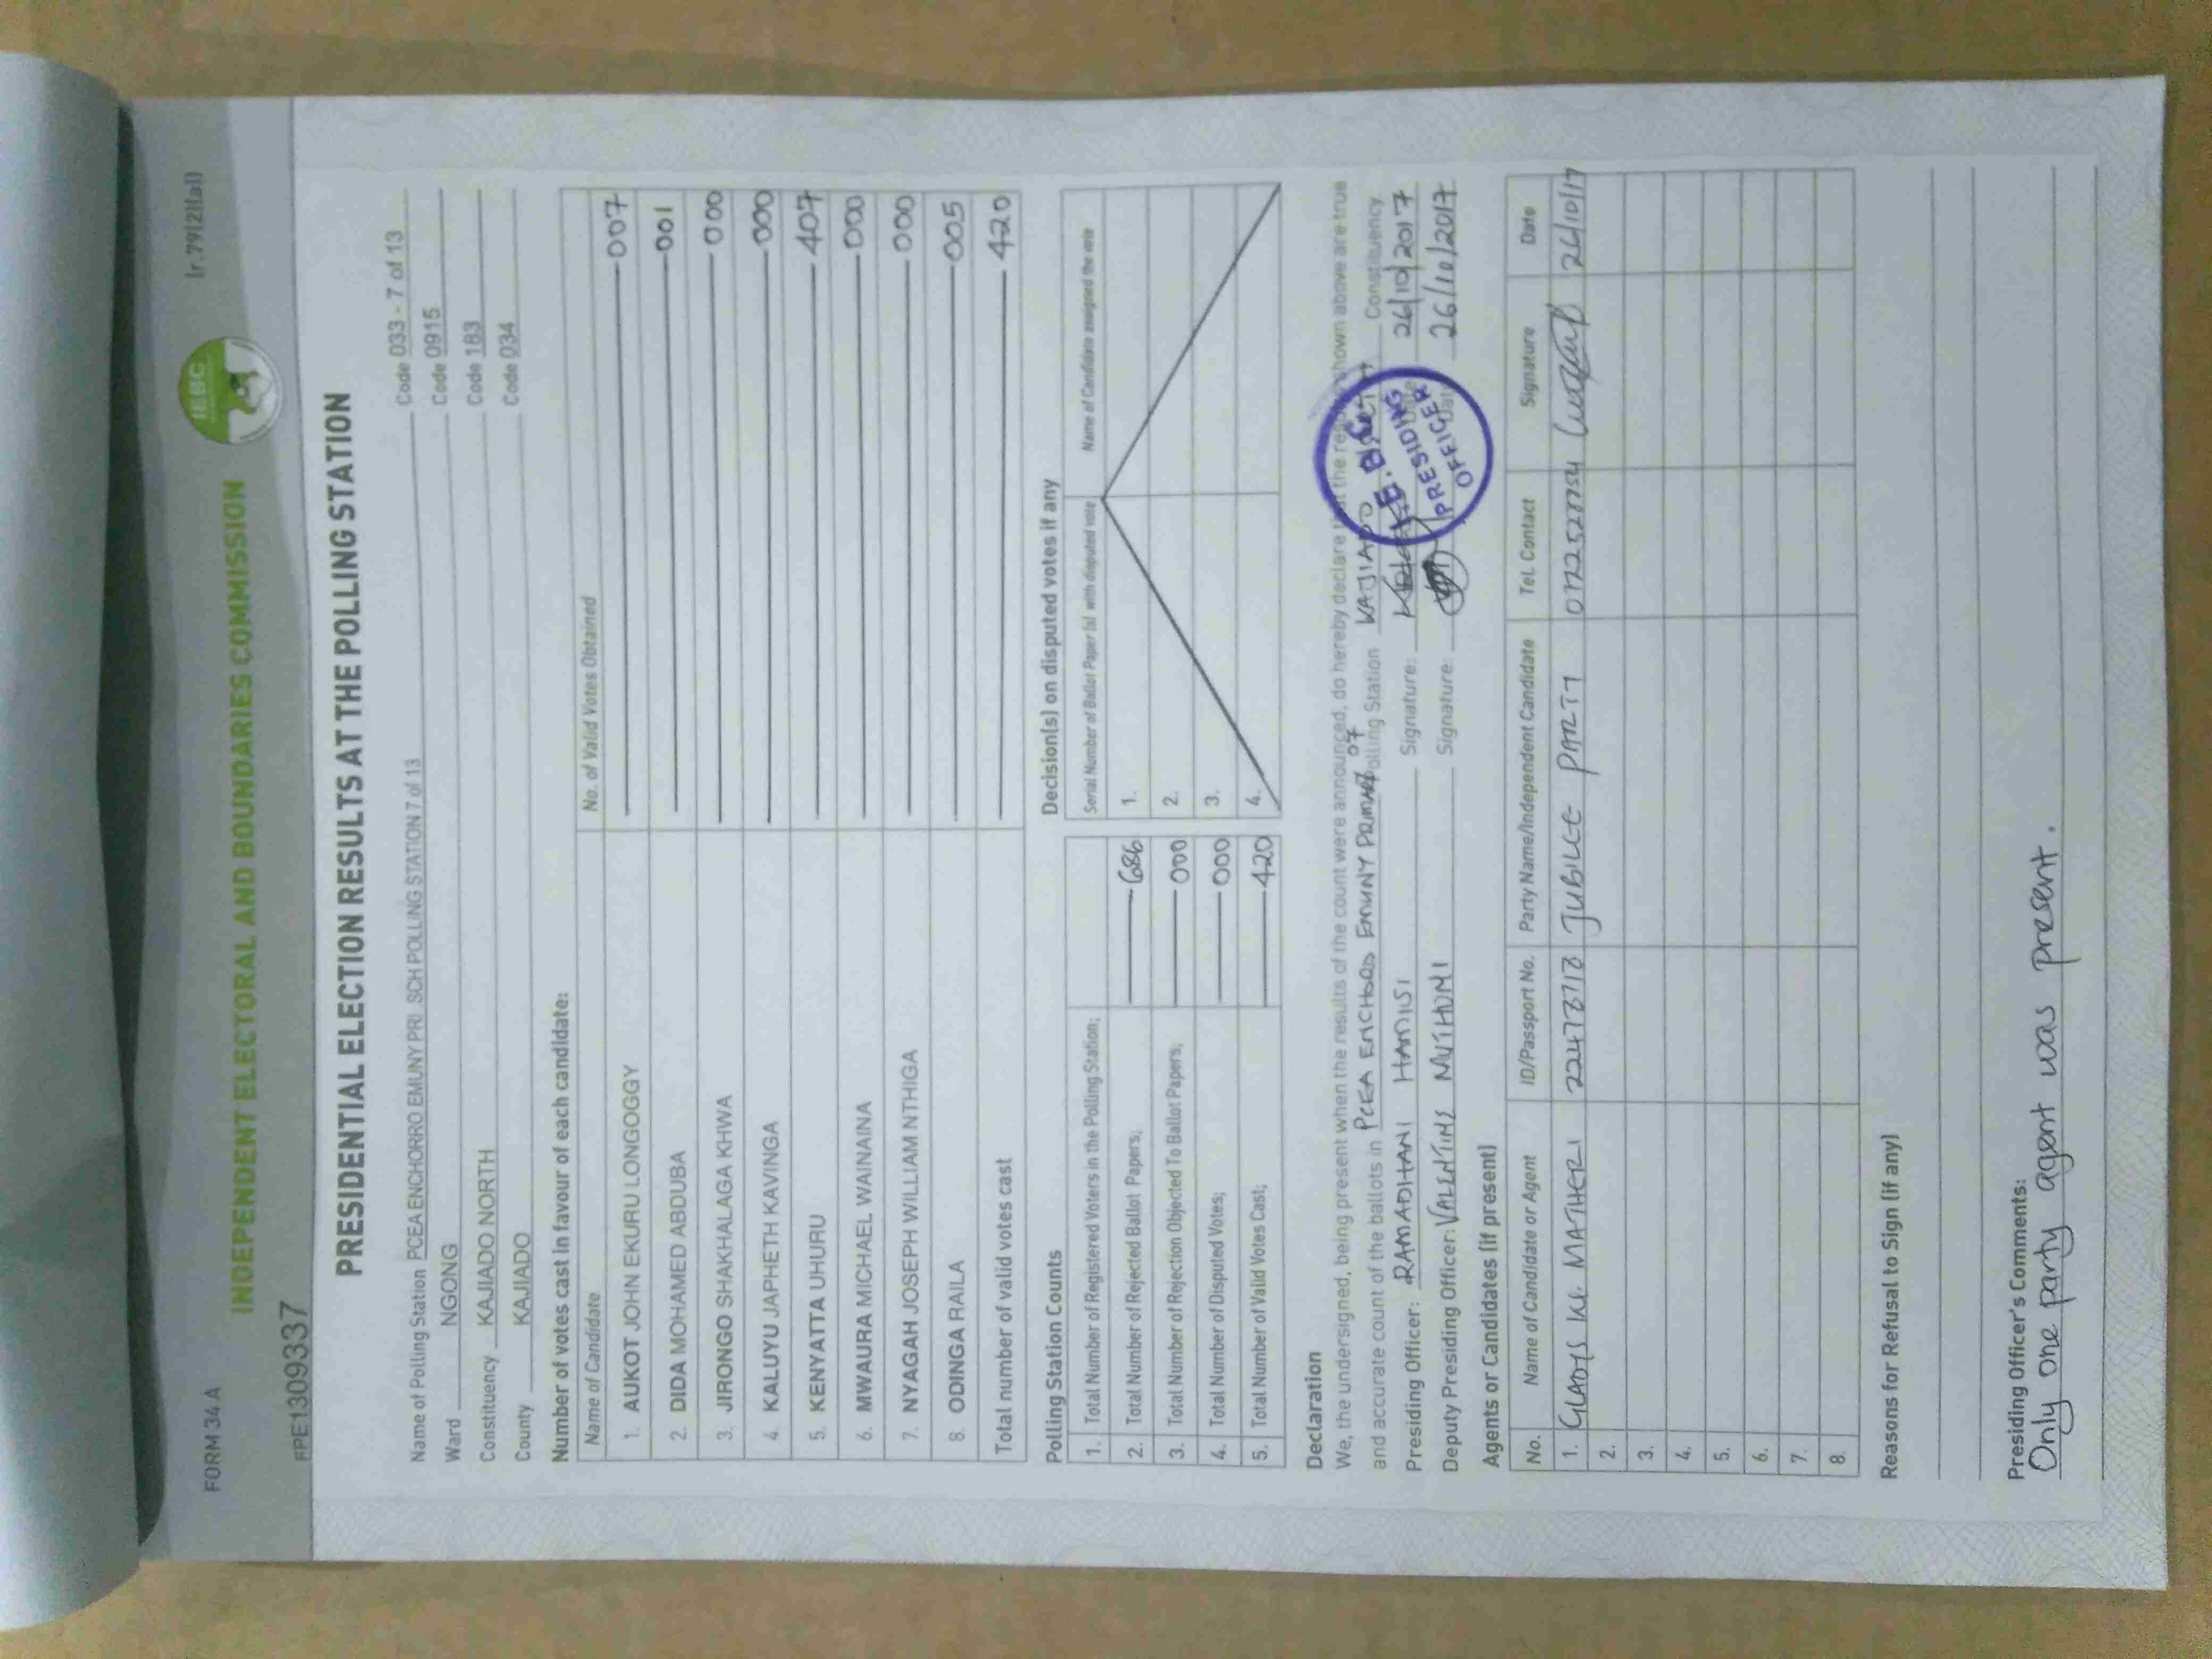 FORM 34 A
(r.79(2)(a))
IEBC
INDEPENDENT ELECTORAL AND BOUNDARIES COMMISSION
FPE1309337
PRESIDENTIAL ELECTION RESULTS AT THE POLLING STATION
Name of Polling Station PCEA ENCHORRO EMUNY PRI SCH POLLING STATION 7 of 13 Code 033 - 7 of 13
Ward NGONG Code 0915
Constituency KAJIADO NORTH Code 183
County KAJIADO Code 034
Number of votes cast in favour of each candidate:
Name of Candidate No. of Valid Votes Obtained
1. AUKOT JOHN EKURU LONGOGGY 007
2. DIDA MOHAMED ABDUBA 001
3. JIRONGO SHAKHALAGA KHWA 000
4. KALUYU JAPHETH KAVINGA 000
5. KENYATTA UHURU 407
6. MWAURA MICHAEL WAINAINA 000
7. NYAGAH JOSEPH WILLIAM NTHIGA 000
8. ODINGA RAILA 005
Total number of valid votes cast 420
Polling Station Counts
1. Total Number of Registered Voters in the Polling Station;
2. Total Number of Rejected Ballot Papers; 686
3. Total Number of Rejection Objected To Ballot Papers; 000
4. Total Number of Disputed Votes; 000
5. Total Number of Valid Votes Cast; 420
Decision(s) on disputed votes if any
Serial Number of Ballot Paper (s) with disputed vote Name of Candidate assigned the vote
1.
2.
3.
4.
Declaration
We, the undersigned, being present when the results of the count were announced, do hereby declare that the results shown above are true
and accurate count of the ballots in PCEA ENCHORO EMUNY PRIMARY 07 Polling Station KAJIADO Constituency.
Presiding Officer: RAMADHANI HAMISI Signature: Date 26/10/2017
Deputy Presiding Officer: VALENTINE MUTHOMI Signature: Date 26/10/2017
I.E.B.C
PRESIDING
OFFICER
Agents or Candidates (if present)
No. Name of Candidate or Agent ID/Passport No. Party Name/Independent Candidate Tel. Contact Signature Date
1. GLADYS MATHERI JUBILEE PARTY 26/10/17
2.
3.
4.
5.
6.
7.
8.
Reasons for Refusal to Sign (if any)
Presiding Officer's Comments:
Only one party agent was present.